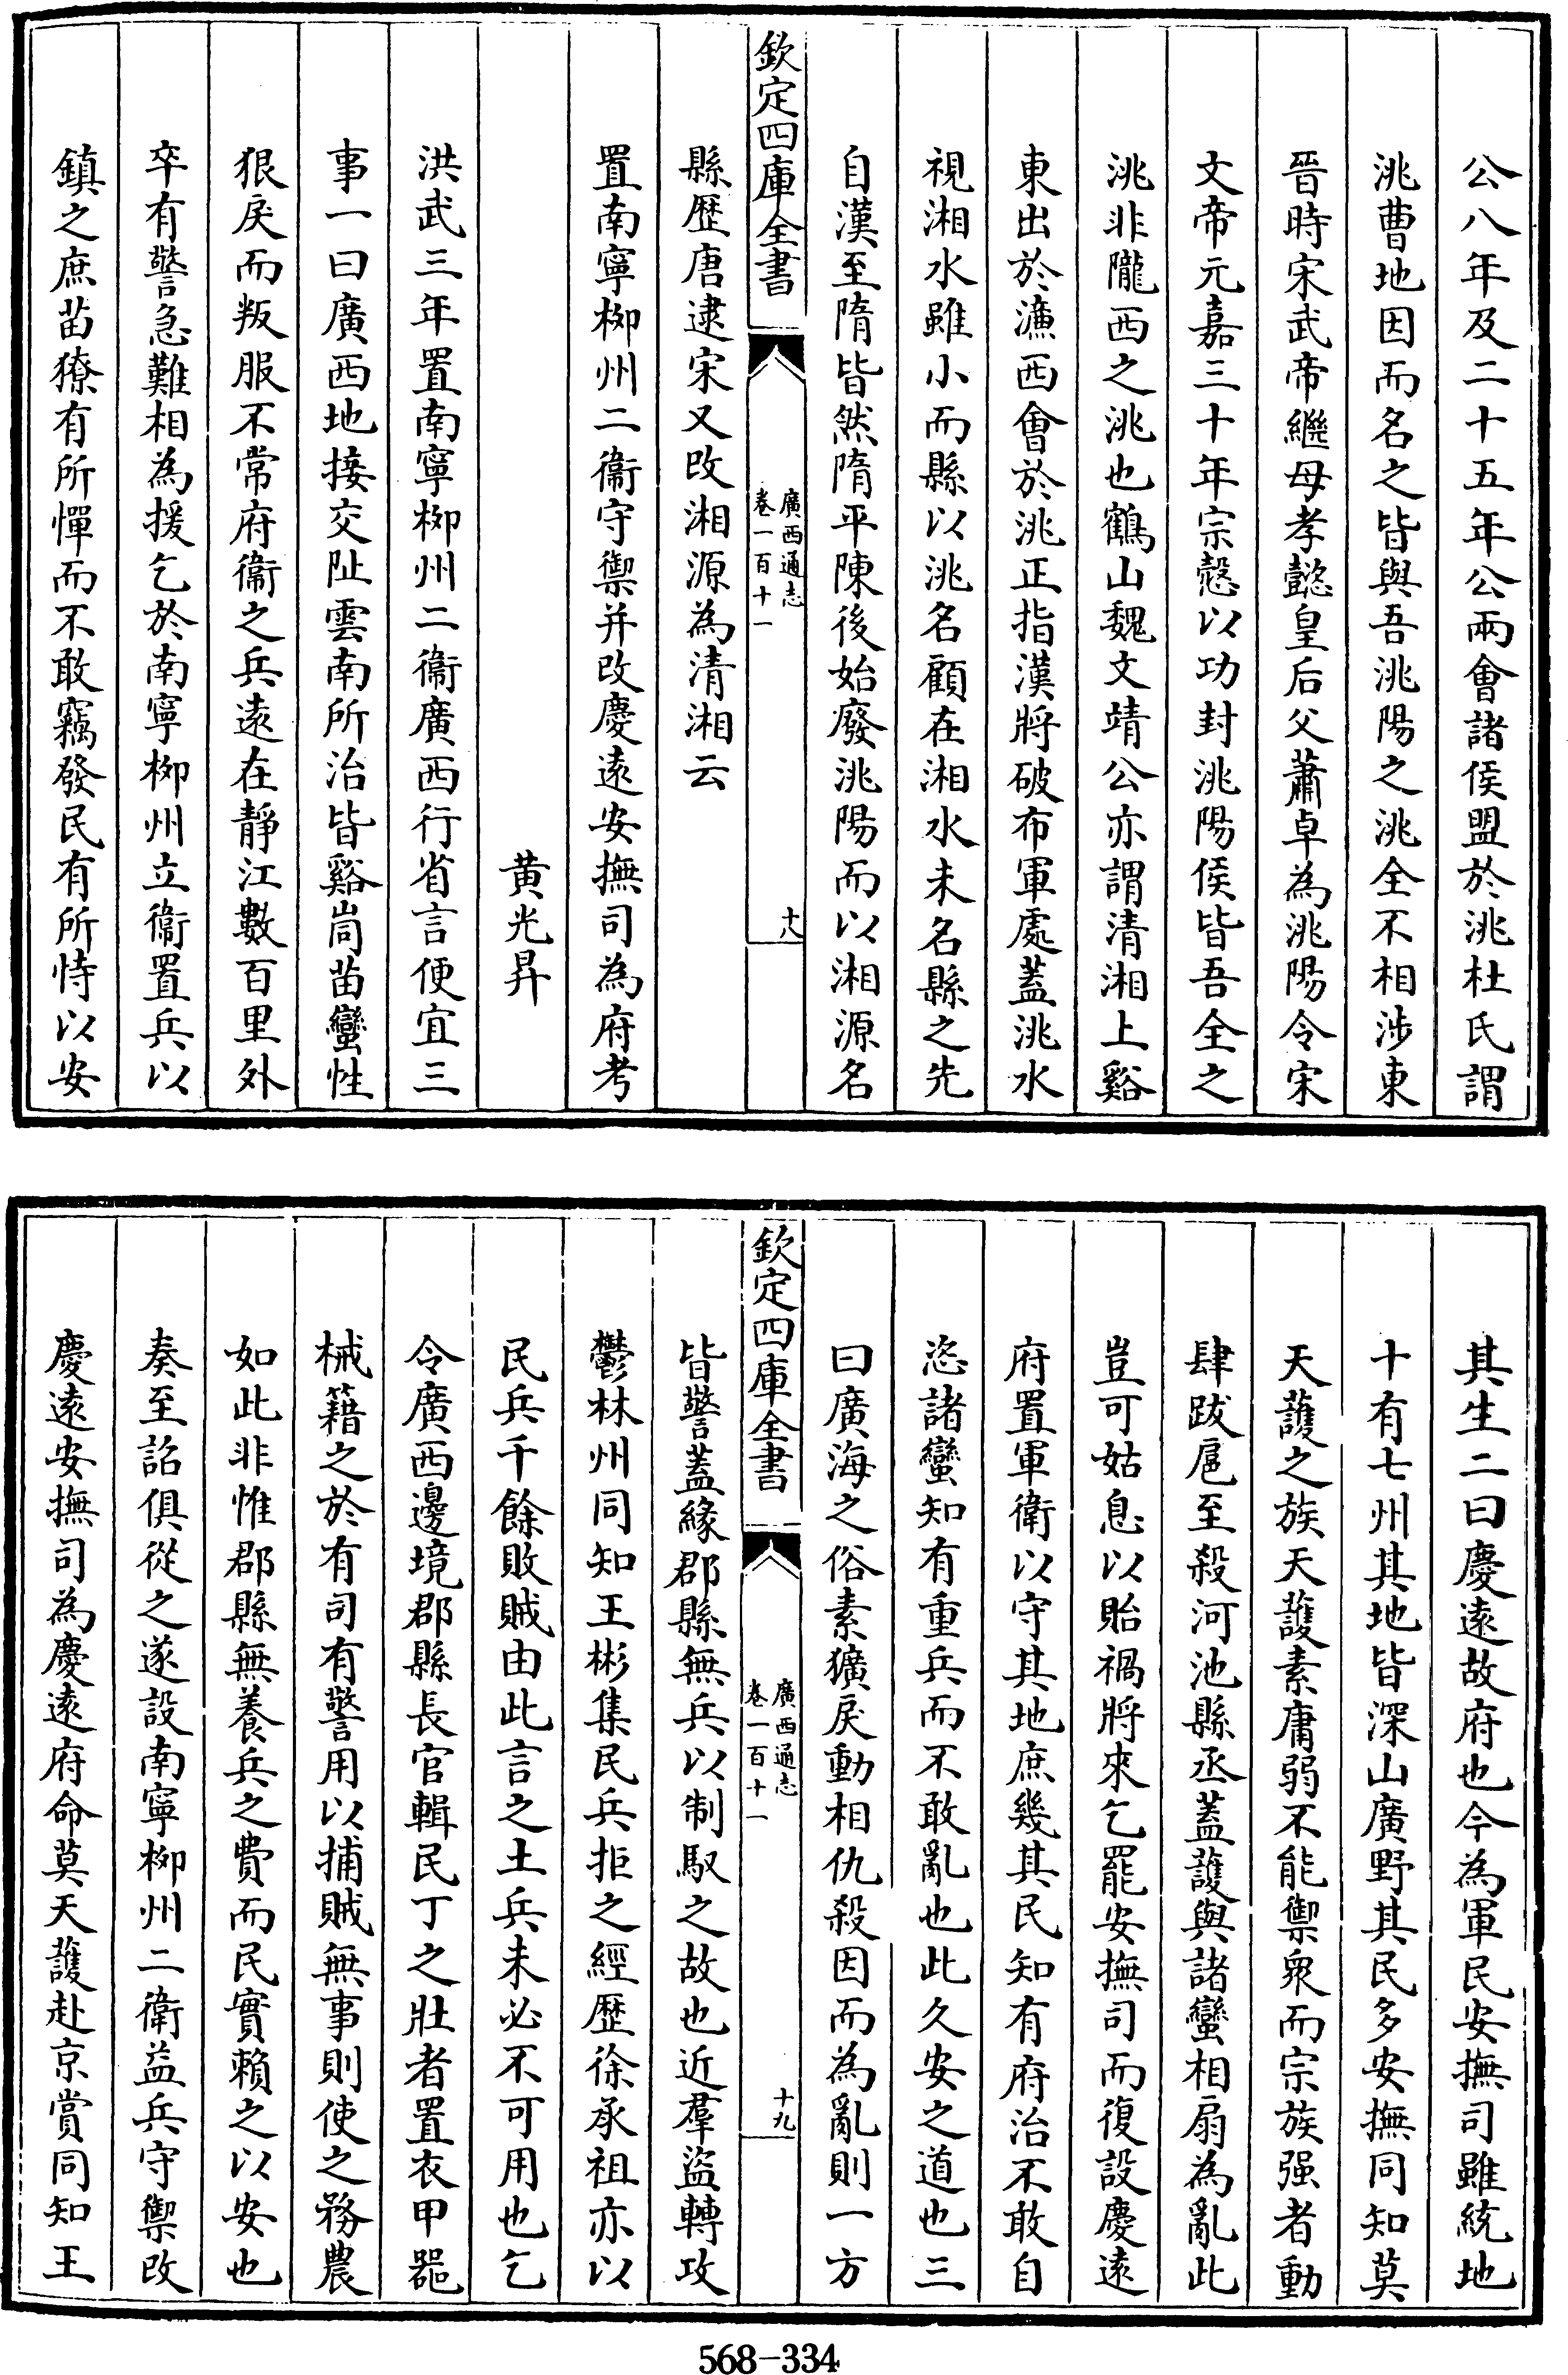 公八年及二十五年公兩會諸侯盟於洮杜氏謂
洮曹地因而名之皆與吾洮陽之洮全不相涉東
晉時宋武帝繼母孝懿皇后父蕭卓為洮陽令宋
文帝元嘉三十年宗慤以功封洮陽侯皆吾全之
洮非隴西之洮也鶴山魏文靖公亦謂清湘上谿
東出於濂西會於洮正指漢將破布軍處蓋洮水
視湘水雖小而縣以洮名顧在湘水未名縣之先
自漢至隋皆然隋平陳後始廢洮陽而以湘源名
欽定四庫全書
廣西通志
卷一百十一
十八
縣歷唐逮宋又改湘源為清湘云
置南寧柳州二衞守禦并改慶遠安撫司為府考
黃光昇
洪武三年置南寧柳州二衞廣西行省言便宜三
事一曰廣西地接交阯雲南所治皆谿峝苗蠻性
狠戾而叛服不常府衞之兵遠在靜江數百里外
卒有警急難相為援乞於南寧柳州立衞置兵以
鎮之庶苗獠有所憚而不敢竊發民有所恃以安
其生二曰慶遠故府也今為軍民安撫司雖統地
十有七州其地皆深山廣野其民多安撫同知莫
天護之族天護素庸弱不能禦衆而宗族强者動
肆跋扈至殺河池縣丞蓋護與諸蠻相扇為亂此
豈可姑息以貽禍將來乞罷安撫司而復設慶遠
府置軍衛以守其地庶幾其民知有府治不敢自
恣諸蠻知有重兵而不敢亂也此久安之道也三
曰廣海之俗素獷戾動相仇殺因而為亂則一方
欽定四庫全書
廣西通志
卷一百十一
十九
皆警蓋緣郡縣無兵以制馭之故也近羣盜轉攻
鬱林州同知王彬集民兵拒之經歷徐承祖亦以
民兵千餘敗賊由此言之土兵未必不可用也乞
令廣西邊境郡縣長官輯民丁之壯者置衣甲器
械籍之於有司有警用以捕賊無事則使之務農
如此非惟郡縣無養兵之費而民實賴之以安也
奏至詔俱從之遂設南寧柳州二衛益兵守禦改
慶遠安撫司為慶遠府命莫天護赴京賞同知王
568-334